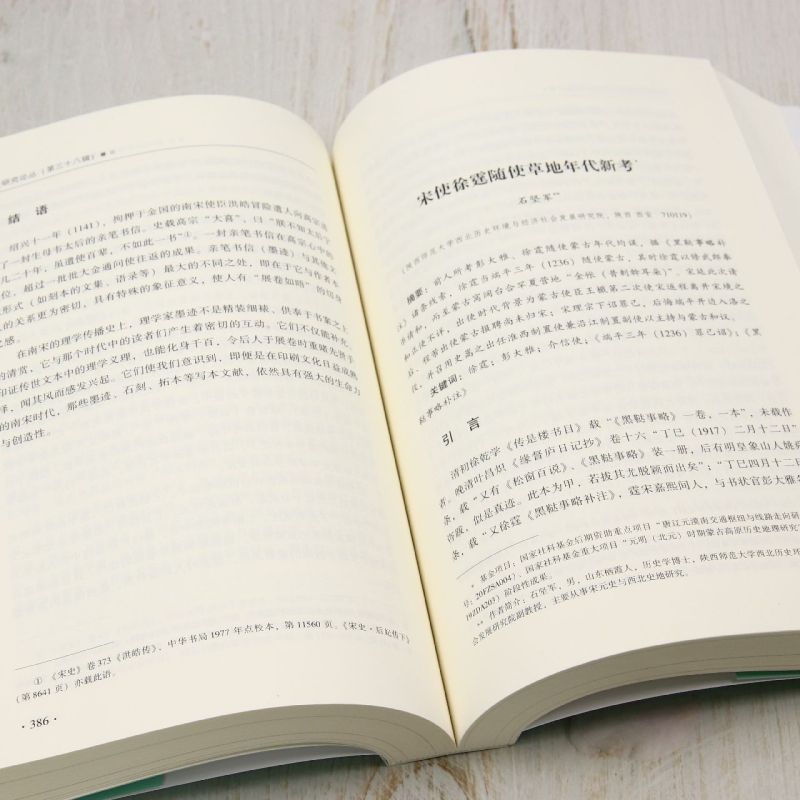 研究论丛（第三十八辑）
结 语
绍兴十一年（1141），拘押于金国的南宋使臣洪皓冒险遣人向高宗
了一封生母韦太后的亲笔书信。史载高宗“大喜”，曰“朕不知太后宁
几二十年，虽遣使百辈，不如此一书”①。一封亲笔书信在高宗心中的
位，超过一批批大金通问使往返的成果。亲笔书信（墨迹）与其他文
形式（如刻本的文集、语录等）最大的不同之处，即在于它与作者本
的关系更为密切，具有特殊的象征意义，使人有“展卷如晤”的切身
之感。
在南宋的理学传播史上，理学家墨迹不是精装细裱、供奉于书案之上
的清赏，它与那个时代中的读者们产生着密切的互动。它们不仅能补充
印证传世文本中的理学义理，也能化身千百，令后人于展卷时重睹先贤手
泽，闻其风而感发兴起。它们使我们意识到，即便是在印刷文化日益成熟
的南宋时代，那些墨迹、石刻、拓本等写本文献，依然具有强大的生命力
与创造性。
① 《宋史》卷373《洪皓传》，中华书局1977年点校本，第11560页。《宋史·后妃传下》
（第8641页）亦载此语。
·386·
宋使徐霆随使草地年代新考*
石坚军**
（陕西师范大学西北历史环境与经济社会发展研究院，陕西 西安 710119）
摘要：前人所考彭大雅、徐霆随使蒙古年代均误，据《黑鞑事略补
注》诸条线索，徐霆当端平三年（1236）随使蒙古，其时徐霆以修武郎奉
使请和，而至蒙古窝阔台合罕夏营地“金帐（昔剌斡耳朵）”。宋廷此次请
和正使不详，出使时代背景为蒙古使臣王檝第二次使宋返程离开宋境之
程，
关键词：徐霆；彭大雅；介信使；《端平三年（1236）罪己诏》；《黑
鞑事略补注》
引 言
清初徐乾学《传是楼书目》载“《黑鞑事略》一卷，一本”，未载作
者。晚清叶昌炽《缘督庐日记抄》卷十六“丁巳（1917）二月十二日”
条，载“又有《松窗百说》、《黑鞑事略》装一册，后有明皇象山人姚
咨跋，似是真迹。此本为甲，若拔其尤脱颖而出矣”；“丁巳四月十二日”
条，载“又徐霆《黑鞑事略补注》，霆宋嘉熙间人，与书状官彭大雅
* 基金项目：国家社科基金后期资助重点项目“唐辽元漠南交通枢纽与线路走向研
号：20FZSA004）、国家社科基金重大项目“元明（北元）时期蒙古高原历史地理研究
19ZDA203）阶段性成果。
** 作者简介：石坚军，男，山东栖霞人，历史学博士，陕西师范大学西北历史环
会发展研究院副教授，主要从事宋元史与西北史地研究。